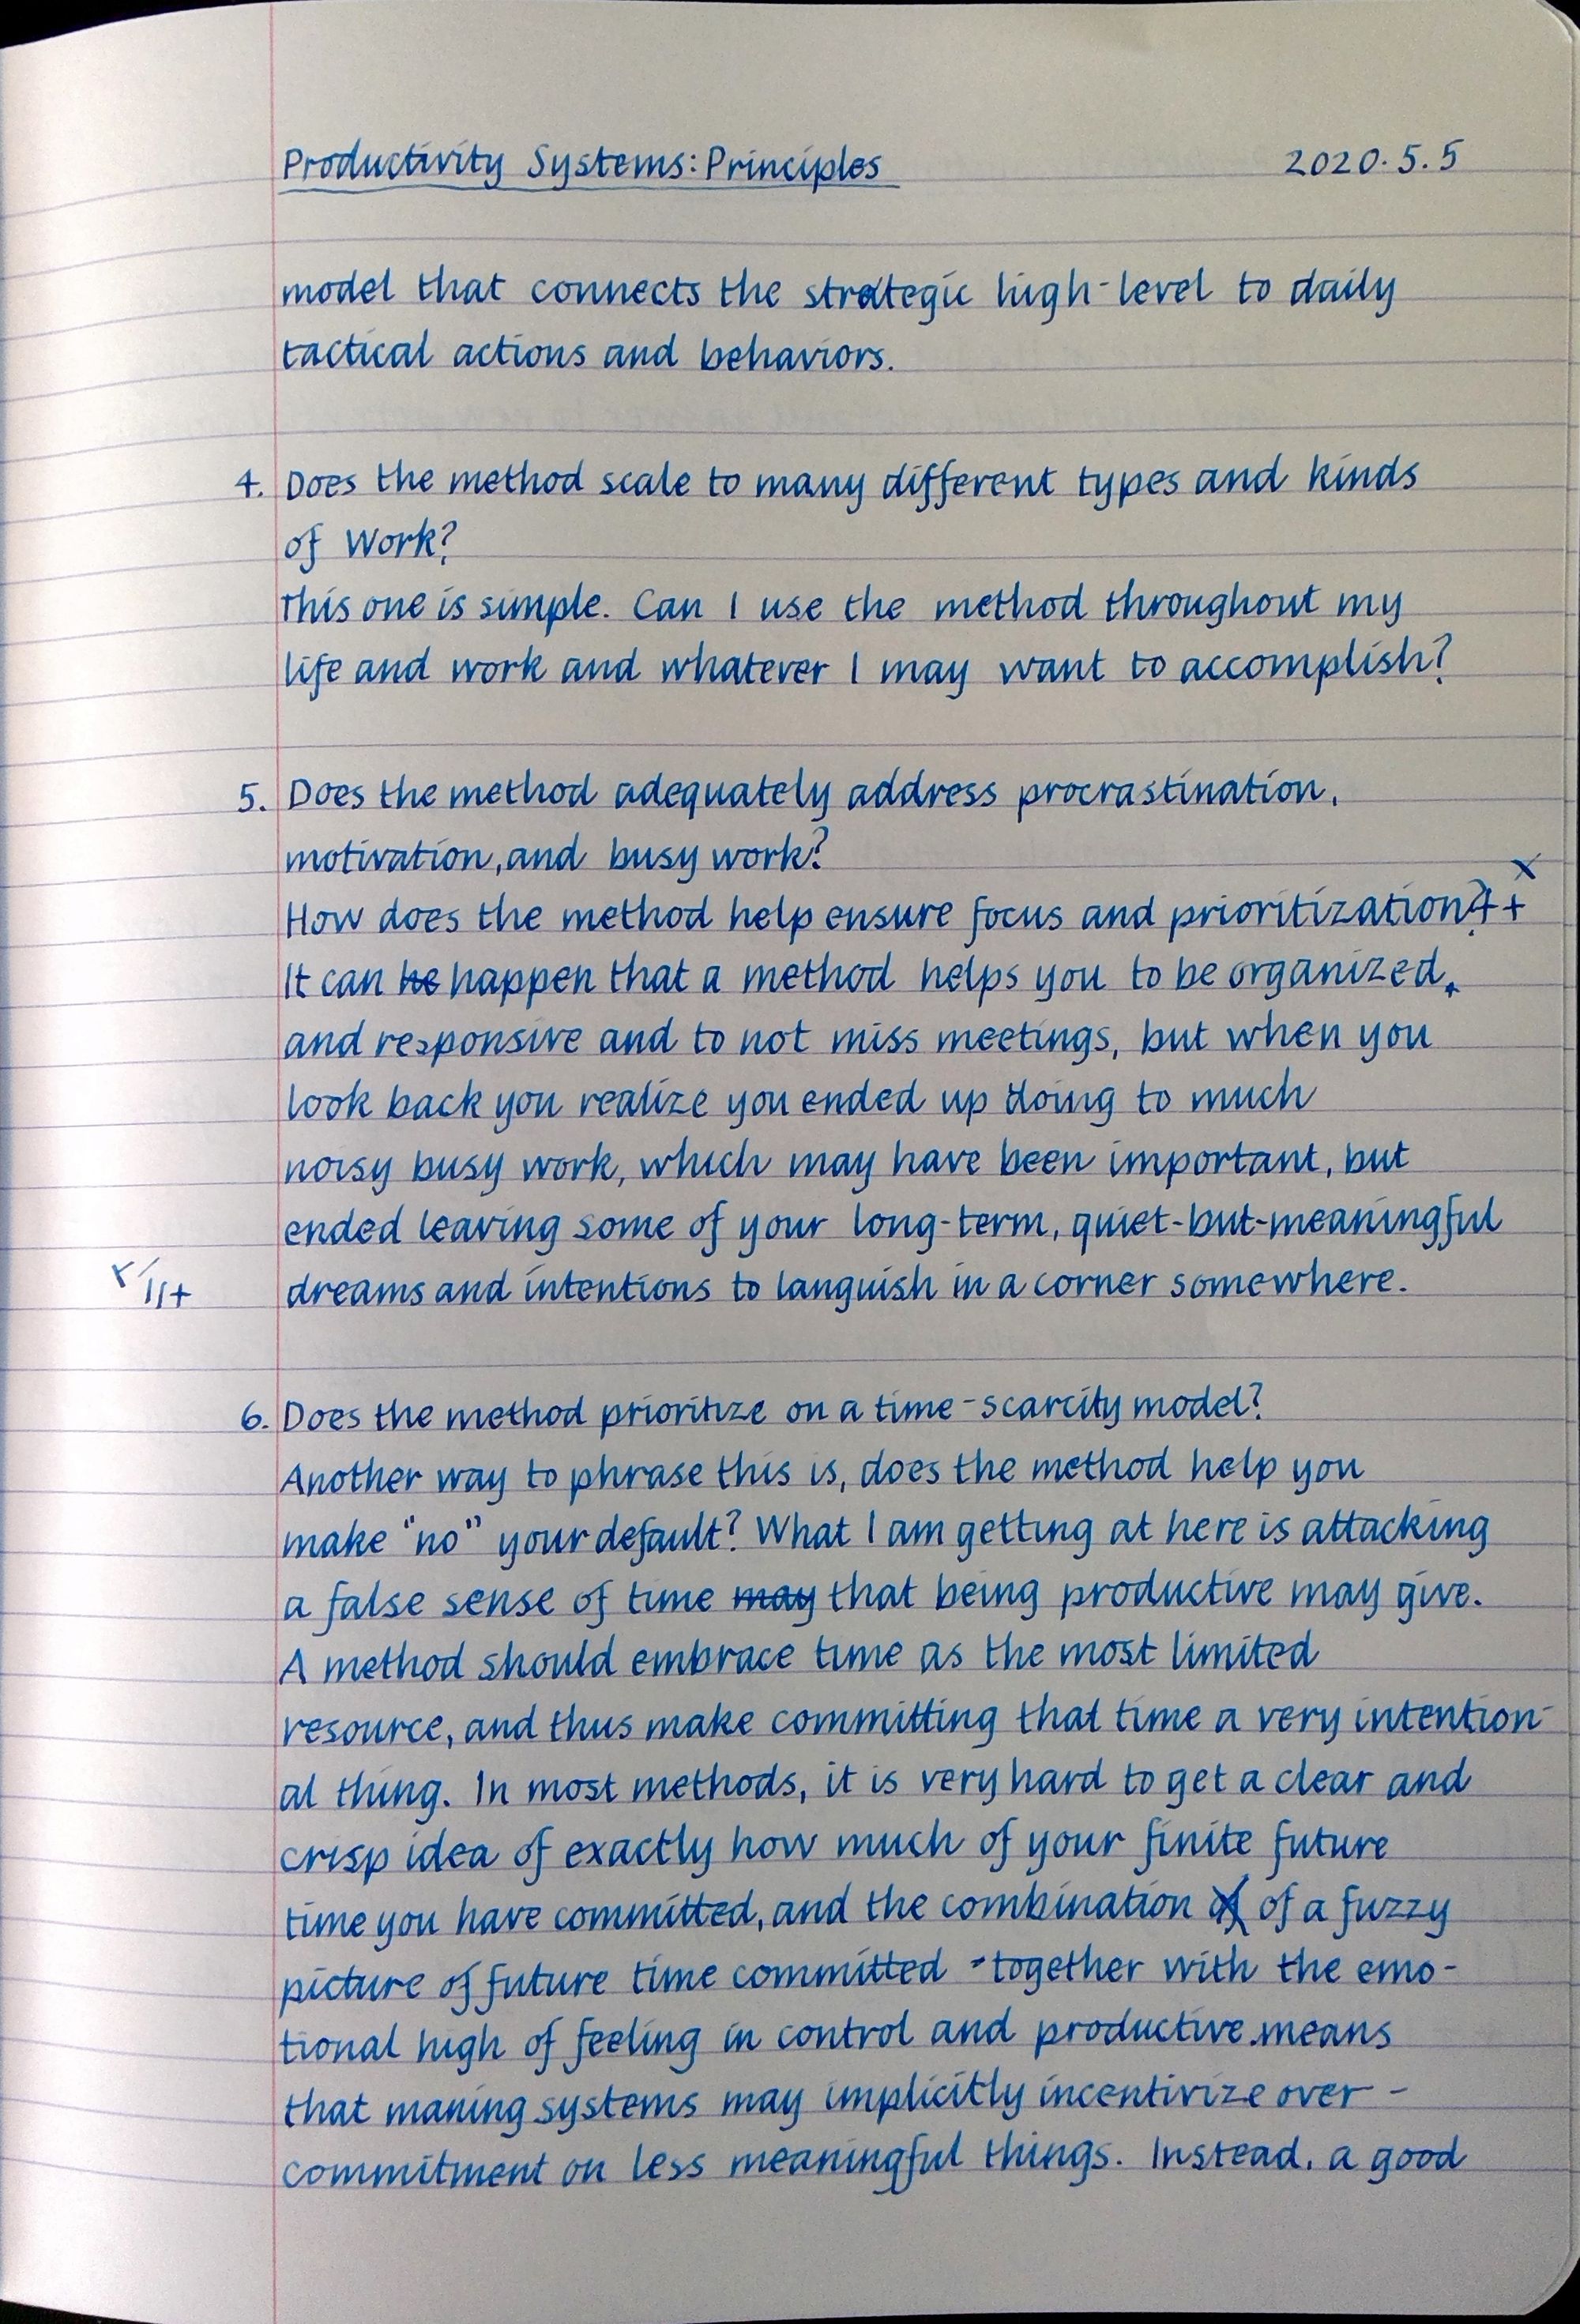 Productivity Systems: Principles 2020.5.5
model that connects the strategic high-level to daily
tactical actions and behaviors.
4. Does the method scale to many different types and kinds
of Work?
This one is simple. Can I use the method throughout my
life and work and whatever I may want to accomplish?
5. Does the method adequately address procrastination,
motivation, and busy work?
How does the method help ensure focus and prioritization?
It can he happen that a method helps you to be organized,
and responsive and to not miss meetings, but when you
look back you realize you ended up doing to much
noisy busy work, which may have been important, but
ended leaving some of your long-term, quiet-but-meaningful
dreams and intentions to languish in a corner somewhere.
6. Does the method prioritize on a time-scarcity model?
Another way to phrase this is, does the method help you
make "no" your default? What I am getting at here is attacking
a false sense of time may that being productive may give.
A method should embrace time as the most limited
resource, and thus make committing that time a very intention-
al thing. In most methods, it is very hard to get a clear and
crisp idea of exactly how much of your finite future
time you have committed, and the combination of a fuzzy
picture of future time committed - together with the emo-
tional high of feeling in control and productive means
that maning systems may implicitly incentivize over-
commitment on less meaningful things. Instead, a good